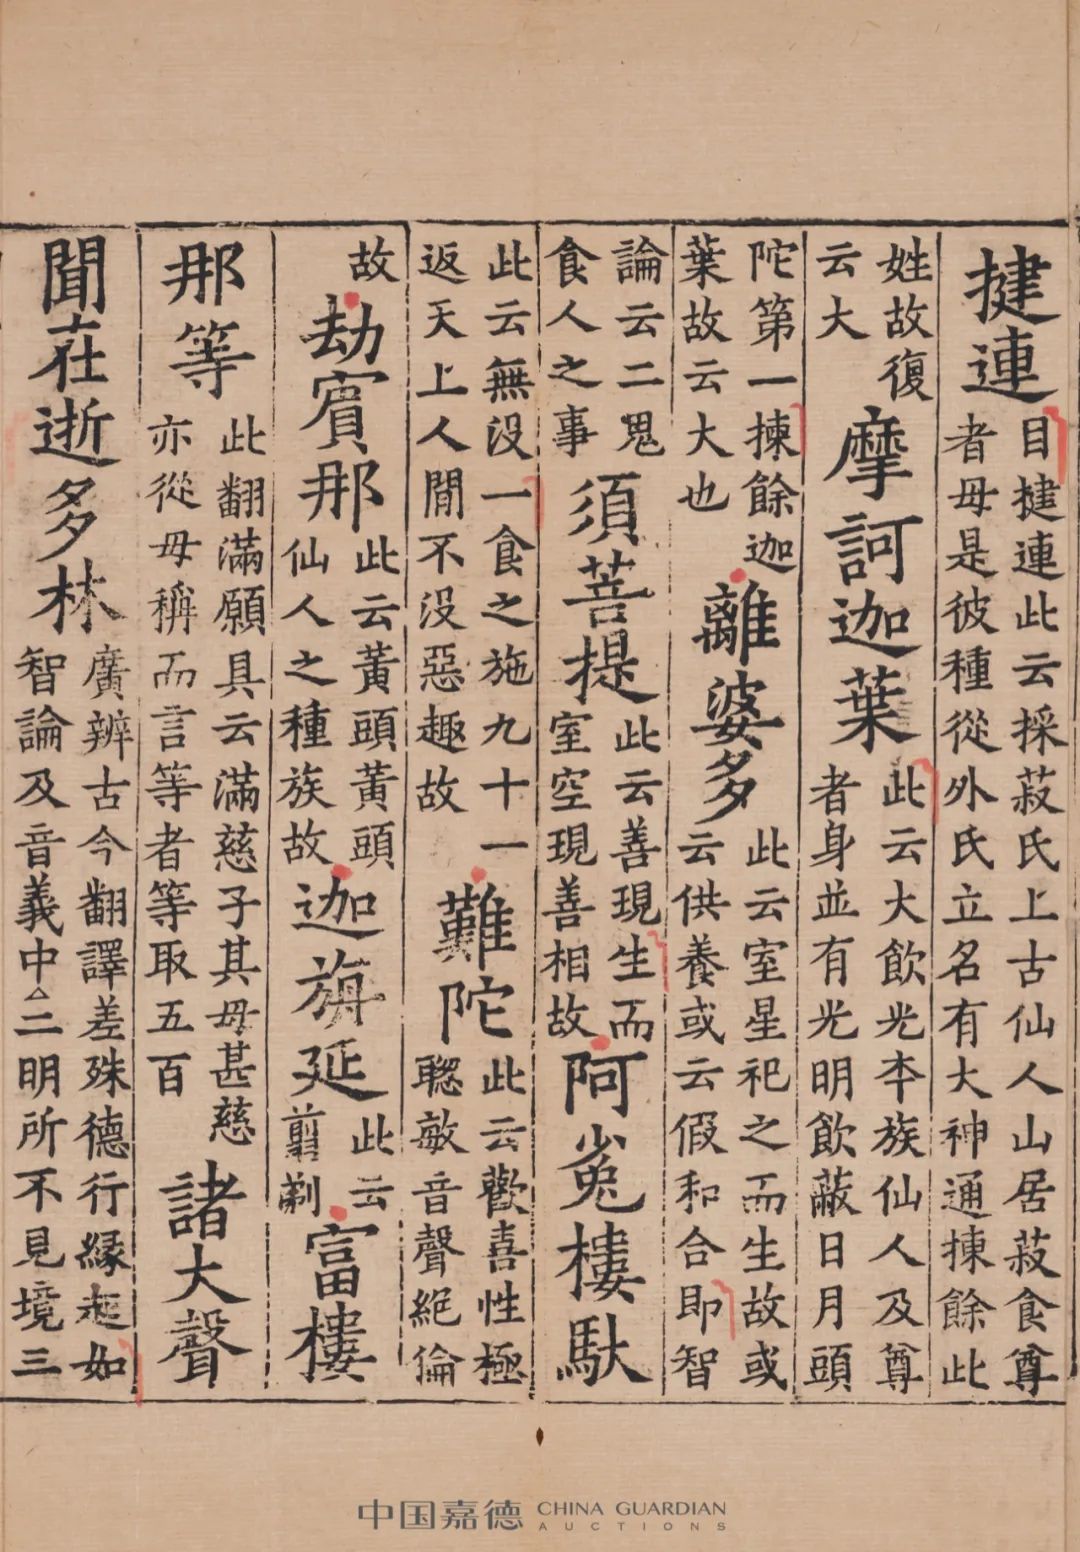 揵連
目揵連此云採菽氏上古仙人山居菽食尊
者母是彼種從外氏立名有大神通揀餘此
姓故復
云大
摩訶迦葉
此云大飲光本族仙人及尊
者身並有光明飲蔽日月頭
陀第一揀餘迦
葉故云大也
離婆多
此云室星祀之而生故或
云供養或云假和合即智
論云二鬼
食人之事
須菩提
此云善現生而
室空現善相故
阿㝹樓馱
此云無没一食之施九十一
返天上人間不没惡趣故
難陀
此云歡喜性極
聰敏音聲絕倫
故
劫賓那
此云黃頭黃頭
仙人之種族故
迦旃延
此云
剪剃
富樓
那等
此翻滿願具云滿慈子其母甚慈
亦從母稱而言等者等取五百
諸大聲
聞在逝多林
廣辨古今翻譯差殊德行緣起如
智論及音義中△二明所不見境三
中国嘉德 CHINA GUARDIAN
AUCTIONS